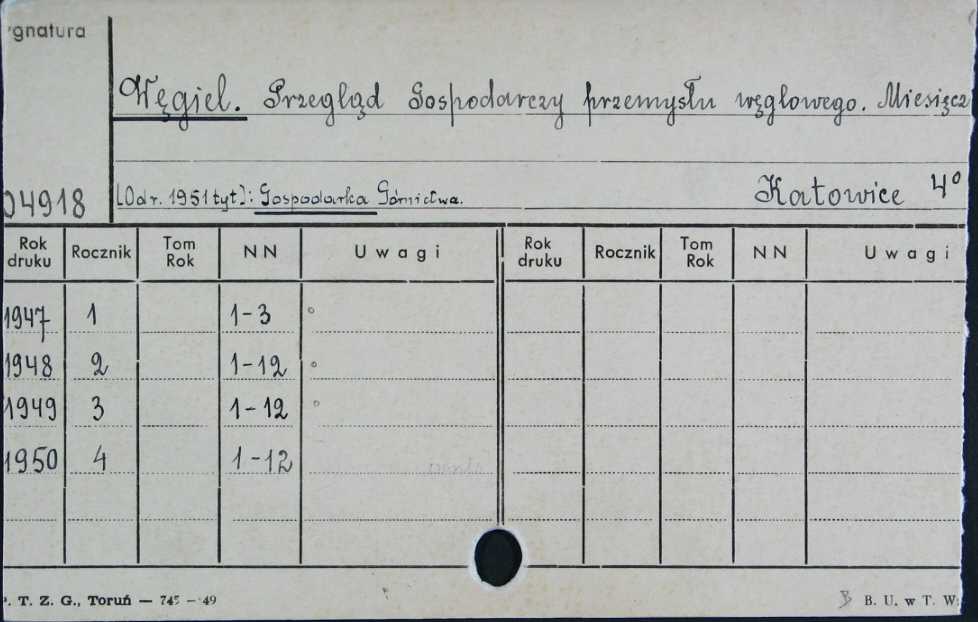 ygnatura
Węgiel. Przegląd Gospodarczy przemysłu węglowego. Miesięcz
04918
[Od r. 1951 tyt]: Gospodarka Górnictwa.
Katowice 4°
Rok druku Rocznik Tom Rok NN Uwagi Rok druku Rocznik Tom Rok NN Uwagi
1947 1 1-3 °
1948 2 1-12 °
1949 3 1-12 °
1950 4 1-12
P. T. Z. G., Toruń — 745 — 49
B. U. w T. W